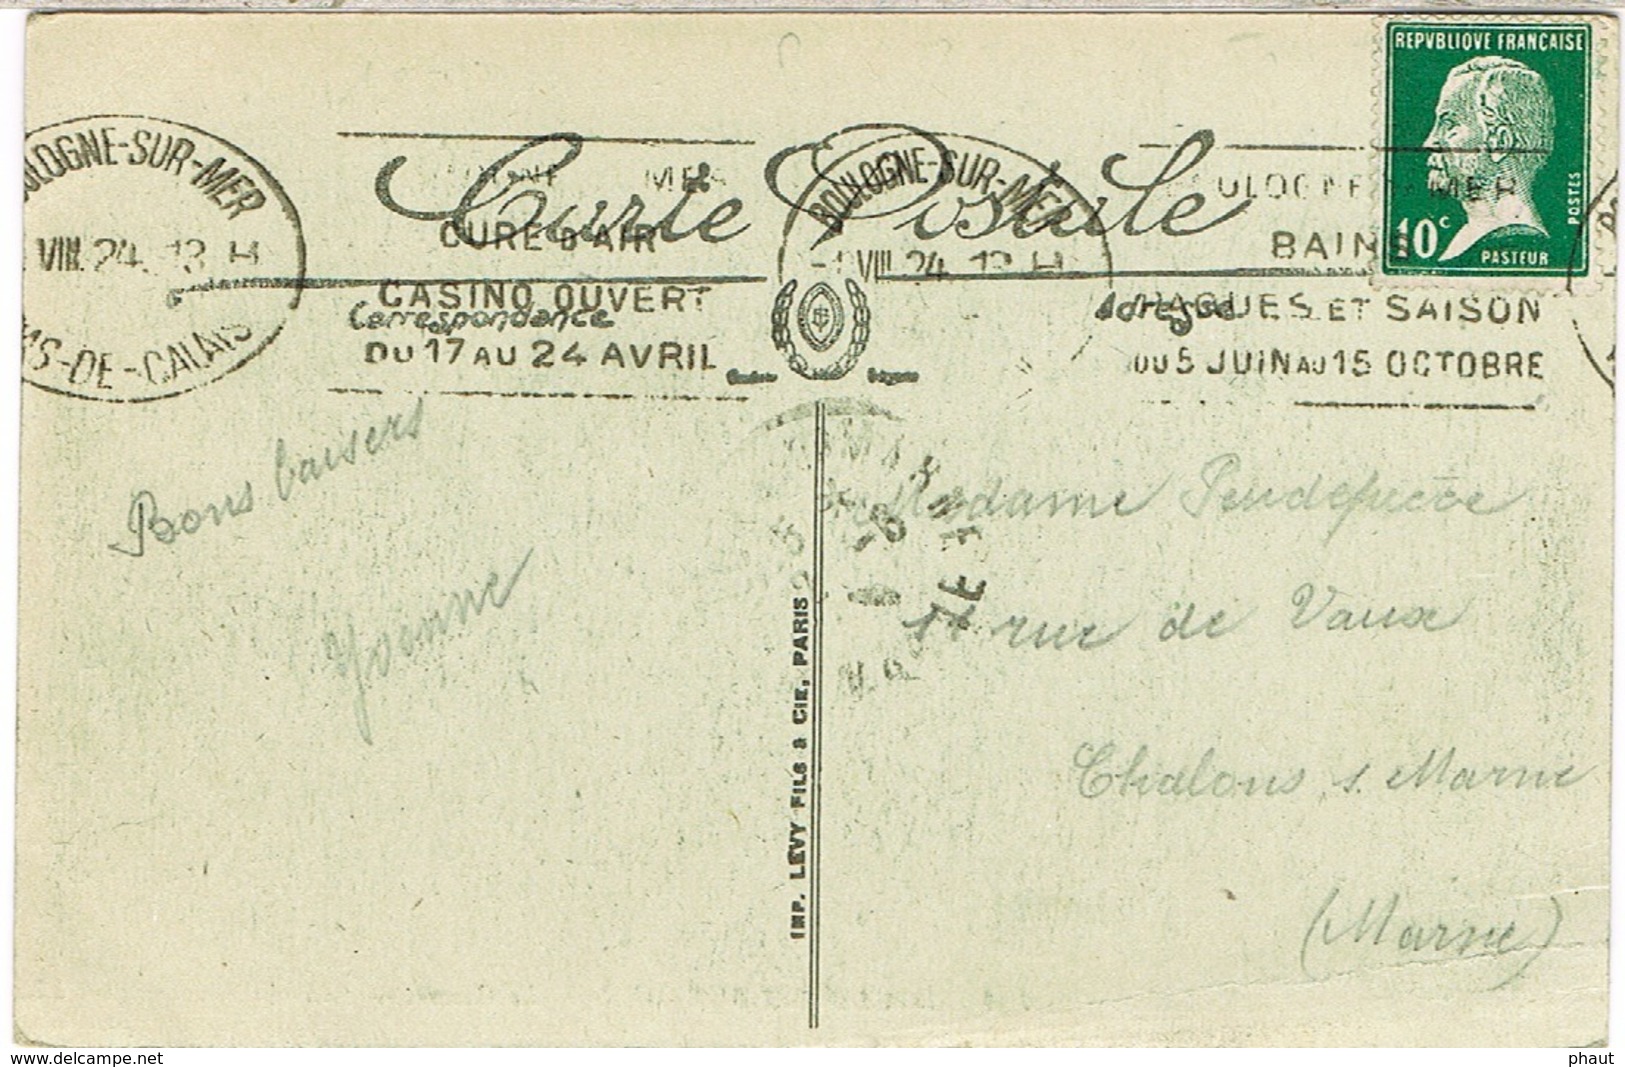 REPVBLIQVE FRANÇAISE
10c
PASTEUR
POSTES
Carte Postale
BOULOGNE-SUR-MER
VIII 24 13 H
PAS-DE-CALAIS
CURE D'AIR
CASINO OUVERT
DU 17 AU 24 AVRIL
BOULOGNE-SUR-MER
-1 VIII 24 13 H
BAINS
PAQUES ET SAISON
DU 5 JUIN AU 15 OCTOBRE
Correspondance
Adresse
Bons baisers
Yvonne
Madame
11 rue de Vaux
Chalons s. Marne
(Marne)
IMP. LÉVY FILS & CIE, PARIS
www.delcampe.net
phaut